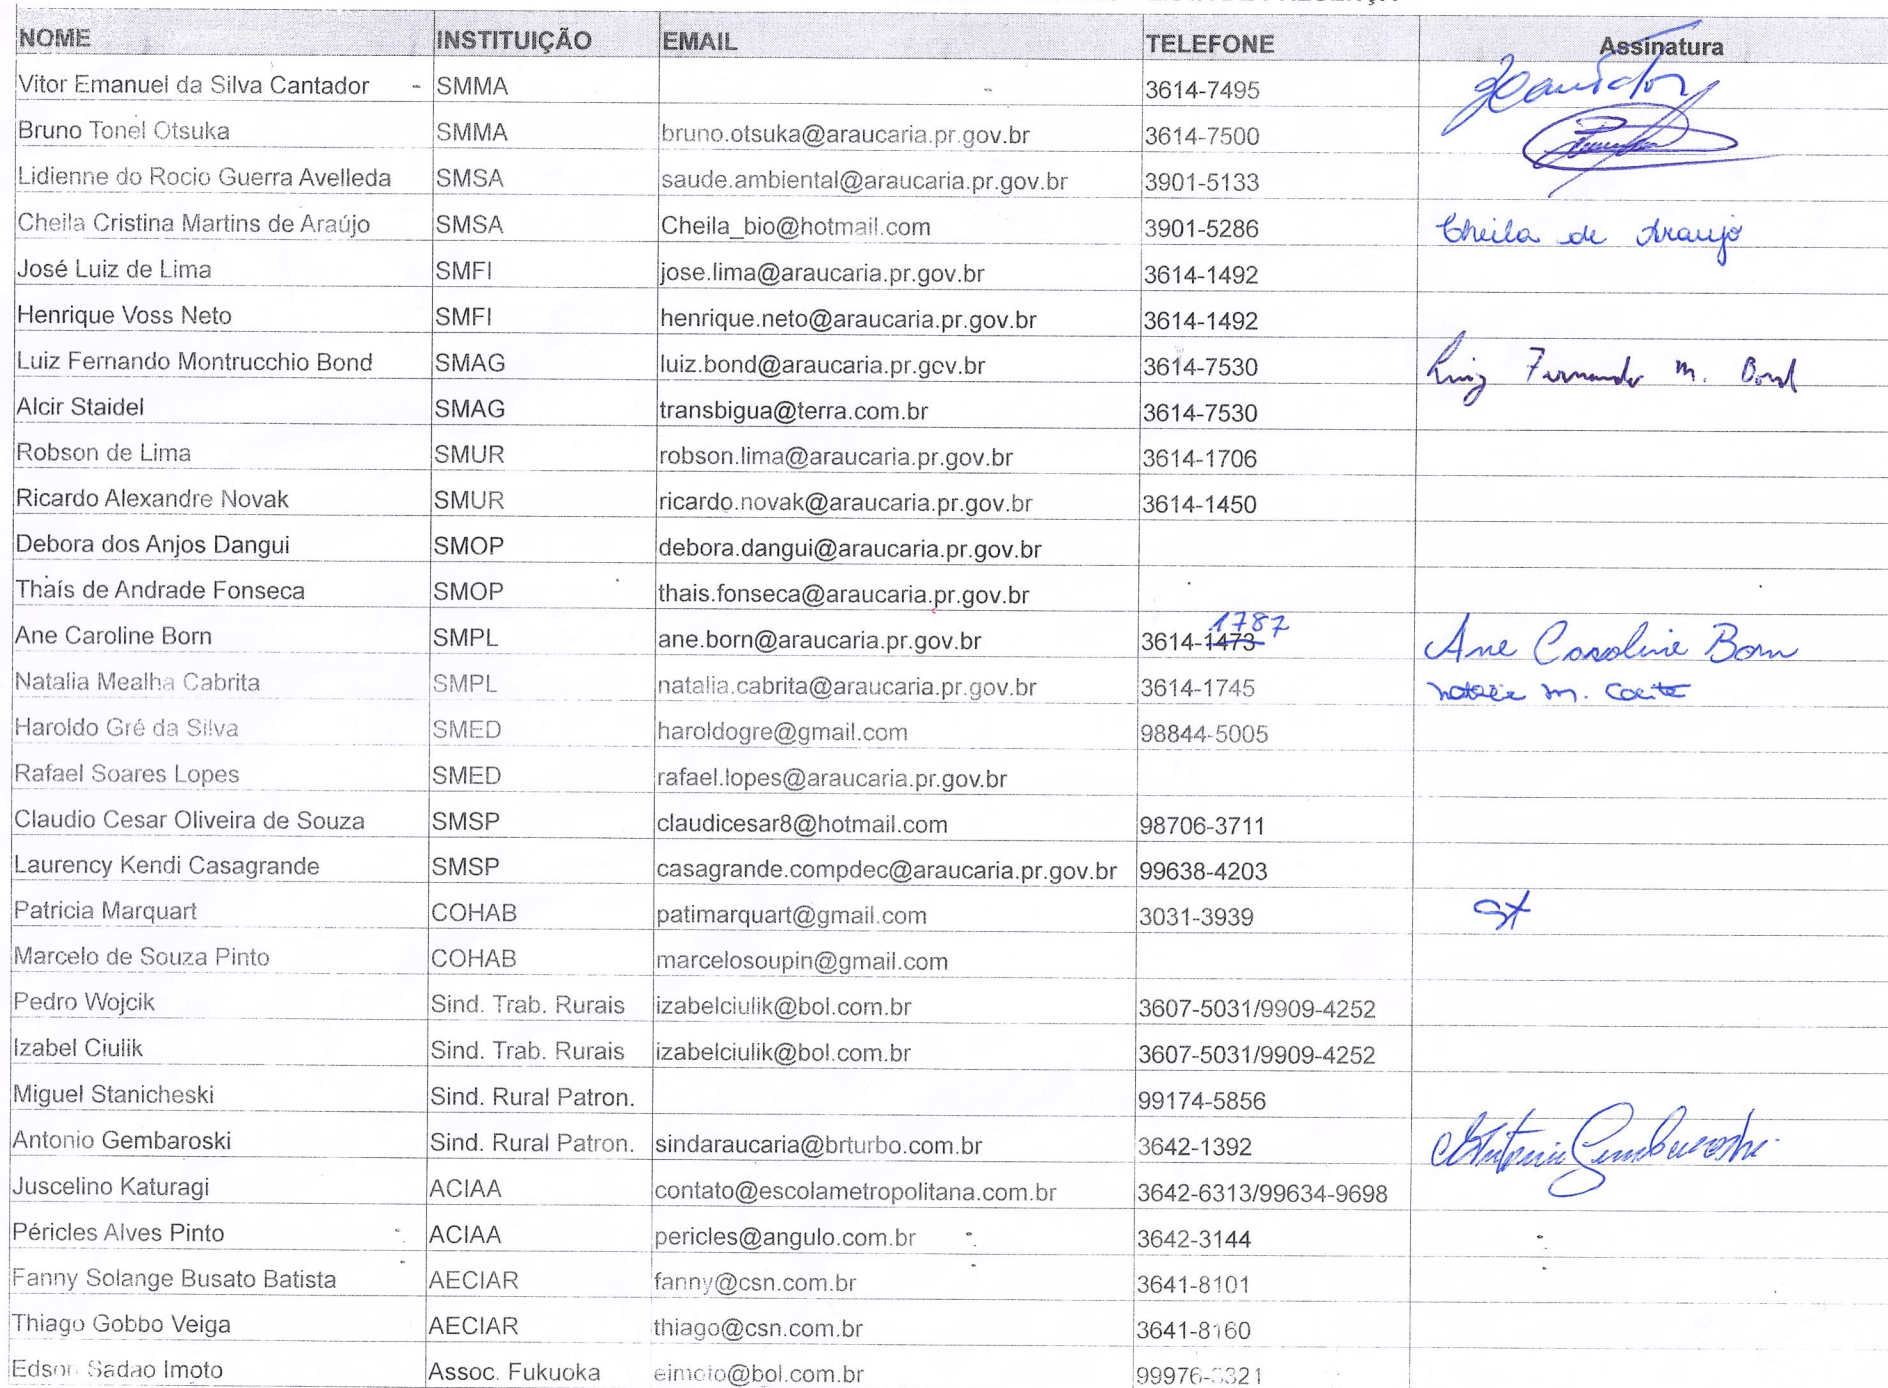 NOME INSTITUIÇÃO EMAIL TELEFONE Assinatura
Vitor Emanuel da Silva Cantador - SMMA 3614-7495
Bruno Tonel Otsuka SMMA bruno.otsuka@araucaria.pr.gov.br 3614-7500
Lidienne do Rocio Guerra Avelleda SMSA saude.ambiental@araucaria.pr.gov.br 3901-5133
Cheila Cristina Martins de Araújo SMSA Cheila_bio@hotmail.com 3901-5286 Cheila de Araujo
José Luiz de Lima SMFI jose.lima@araucaria.pr.gov.br 3614-1492
Henrique Voss Neto SMFI henrique.neto@araucaria.pr.gov.br 3614-1492
Luiz Fernando Montrucchio Bond SMAG luiz.bond@araucaria.pr.gov.br 3614-7530 Luiz Fernando M. Bond
Alcir Staidel SMAG transbigua@terra.com.br 3614-7530
Robson de Lima SMUR robson.lima@araucaria.pr.gov.br 3614-1706
Ricardo Alexandre Novak SMUR ricardo.novak@araucaria.pr.gov.br 3614-1450
Debora dos Anjos Dangui SMOP debora.dangui@araucaria.pr.gov.br
Thaís de Andrade Fonseca SMOP thais.fonseca@araucaria.pr.gov.br
1787
Ane Caroline Born SMPL ane.born@araucaria.pr.gov.br 3614-1473 Ane Caroline Born
Natalia Mealha Cabrita SMPL natalia.cabrita@araucaria.pr.gov.br 3614-1745
Haroldo Gré da Silva SMED haroldogre@gmail.com 98844-5005
Rafael Soares Lopes SMED rafael.lopes@araucaria.pr.gov.br
Claudio Cesar Oliveira de Souza SMSP claudicesar8@hotmail.com 98706-3711
Laurency Kendi Casagrande SMSP casagrande.compdec@araucaria.pr.gov.br 99638-4203
Patricia Marquart COHAB patimarquart@gmail.com 3031-3939
Marcelo de Souza Pinto COHAB marcelosoupin@gmail.com
Pedro Wojcik Sind. Trab. Rurais izabelciulik@bol.com.br 3607-5031/9909-4252
Izabel Ciulik Sind. Trab. Rurais izabelciulik@bol.com.br 3607-5031/9909-4252
Miguel Stanicheski Sind. Rural Patron. 99174-5856
Antonio Gembaroski Sind. Rural Patron. sindaraucaria@brturbo.com.br 3642-1392 Antonio Gembaroski
Juscelino Katuragi ACIAA contato@escolametropolitana.com.br 3642-6313/99634-9698
Péricles Alves Pinto ACIAA pericles@angulo.com.br 3642-3144
Fanny Solange Busato Batista AECIAR fanny@csn.com.br 3641-8101
Thiago Gobbo Veiga AECIAR thiago@csn.com.br 3641-8160
Edson Sadao Imoto Assoc. Fukuoka eimoto@bol.com.br